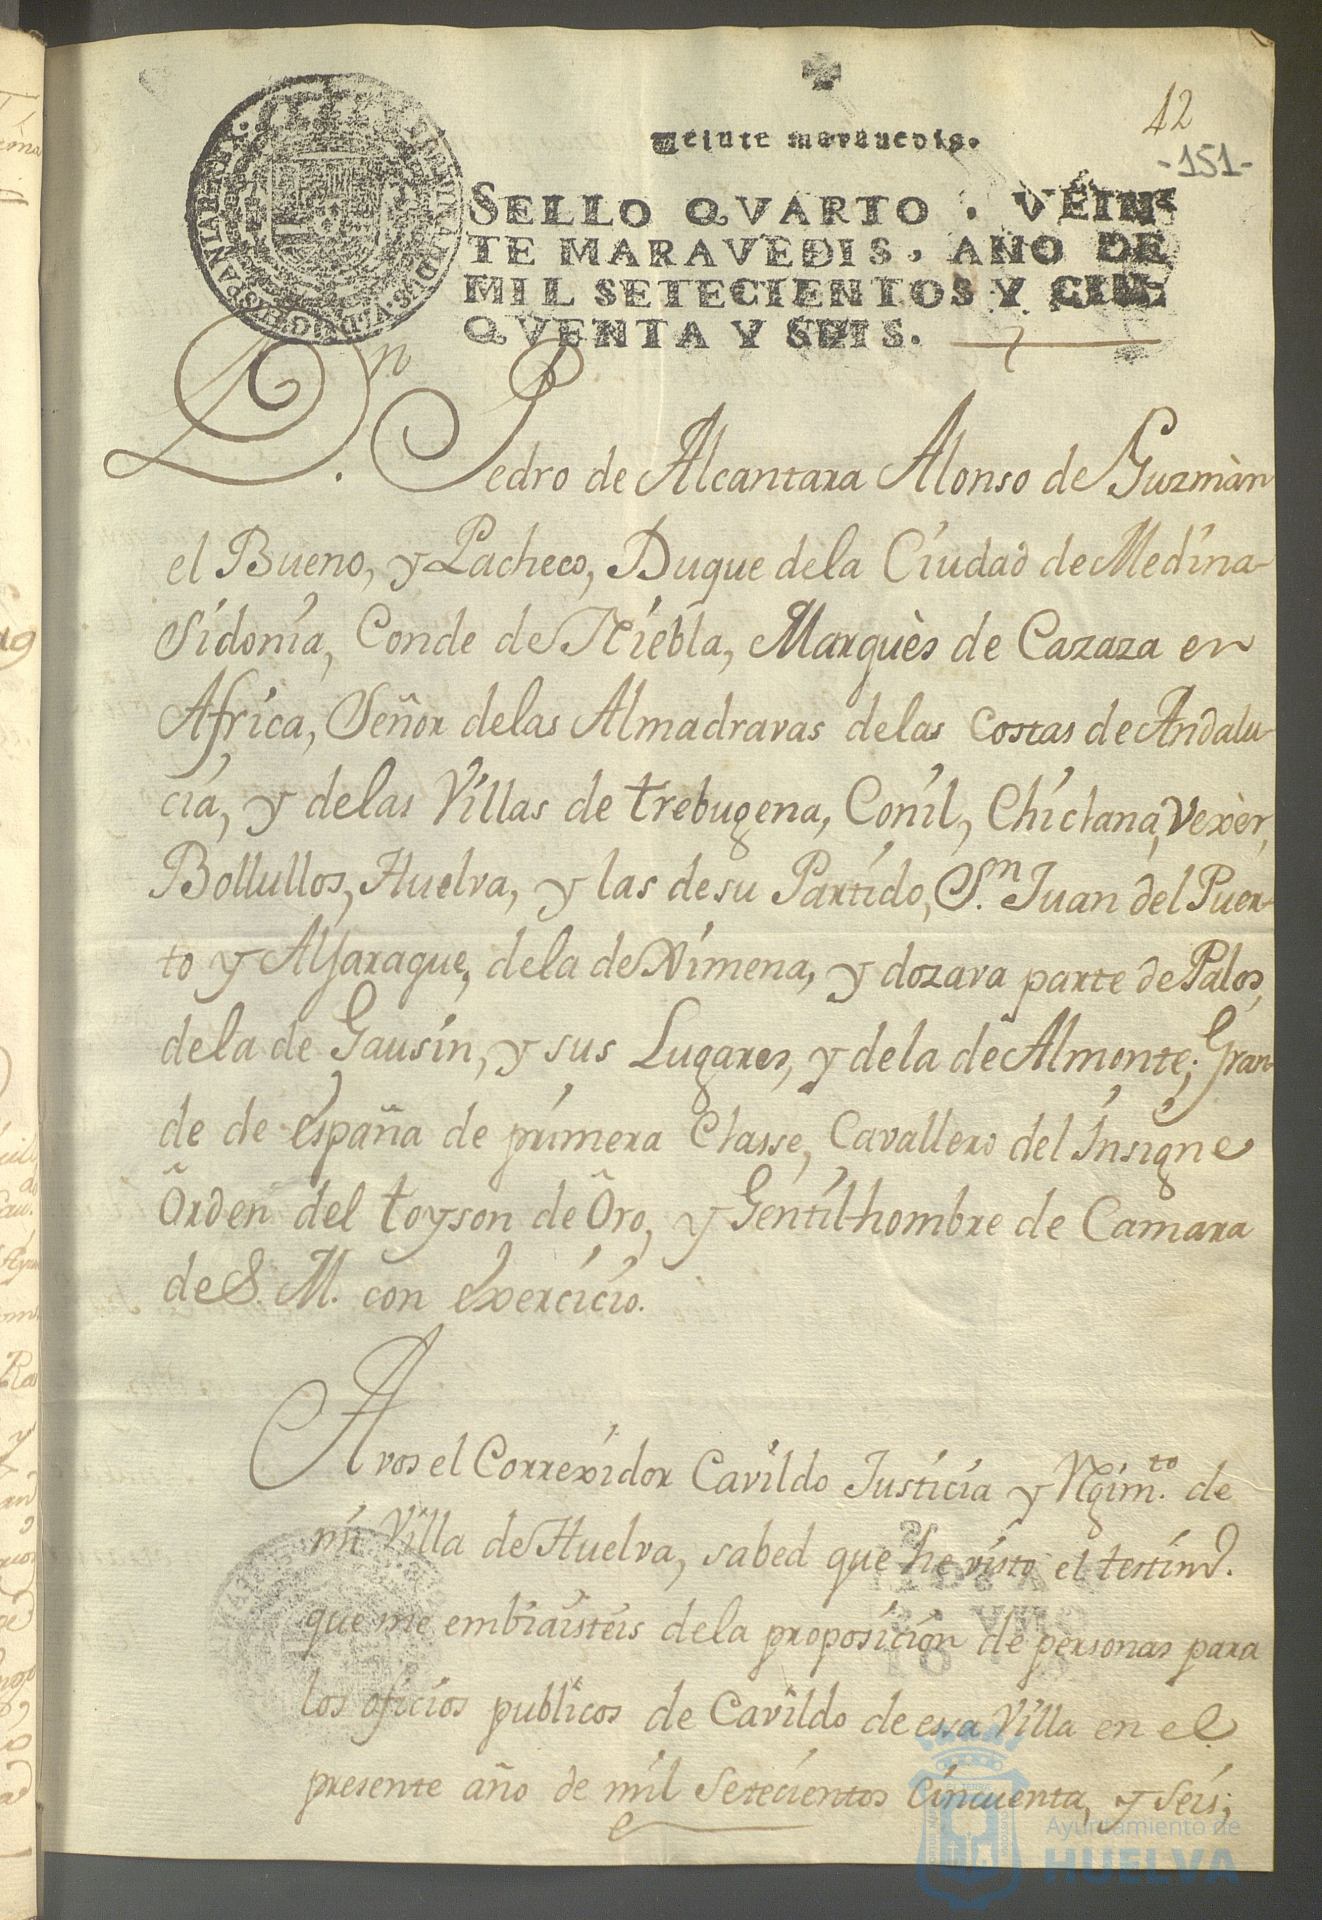 42
-151-
Veinte maravedis.
SELLO QVARTO, VEIN-
TE MARAVEDIS, AÑO DE
MIL SETECIENTOS Y CIN-
QVENTA Y SEIS.
Dn. Pedro de Alcantara Alonso de Guzmàn
el Bueno, y Pacheco, Duque dela Ciudad de Medina-
Sidonia, Conde de Niebla, Marquès de Cazaza en
Africa, Señor delas Almadravas delas Costas de Andalu-
cia, y delas Villas de trebugena, Conil, Chiclana, Vexèr,
Bollullos, Huelva, y las desu Partido, Sn. Juan del Puer-
to y Aljaraque, dela de Ximena, y dozava parte de Palos,
dela de Gausin, y sus Lugares, y dela de Almonte; Gran-
de de españa de primera Classe, Cavallero del Insigne
Orden del toyson de Oro, y Gentilhombre de Camara
de S. M. con exercicio.
A vos el Correxidor Cavildo Justicia y Rgimto. de
mi Villa de Huelva, sabed que he visto el testimo.
que me embiaisteis dela proposicion de personas para
los oficios publicos de Cavildo de essa Villa en el
presente año de mil setecientos Cincuenta, y seis;
Ayuntamiento de
HUELVA